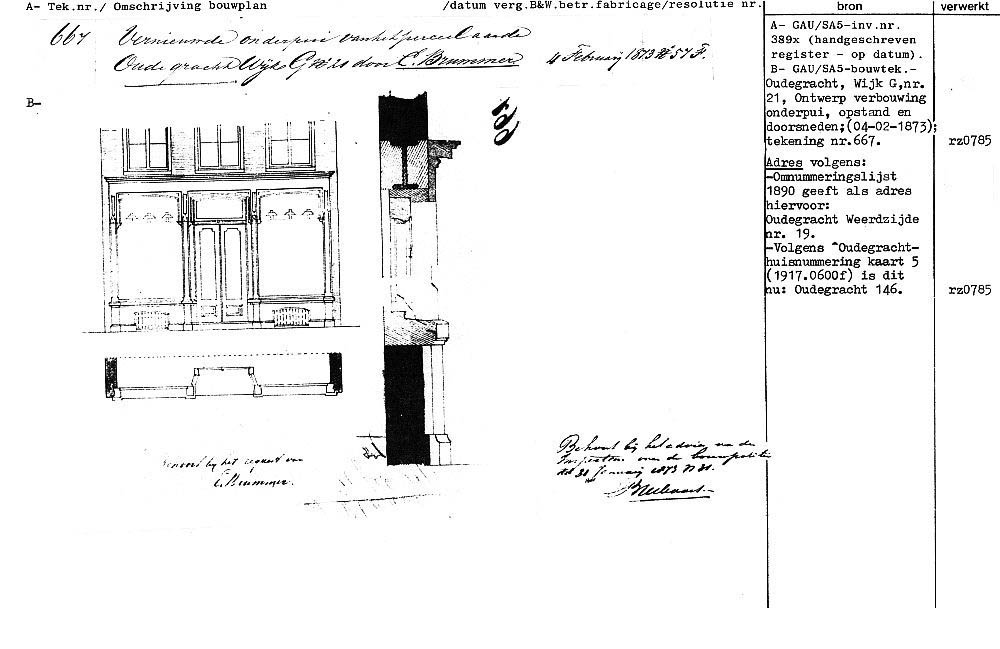 A- Tek.nr./ Omschrijving bouwplan /datum verg.B&W.betr.fabricage/resolutie nr. bron verwerkt
667 Vernieuwde onderpui van het perceel aan de
Oude gracht Wijk G No 21 door C. Brummer 4 Februarij 1873 No 57 F.
B-
667
behoort bij het request van
C. Brummer.
Behoort bij het advies van de
Inspecteur van de bouwpolitie
dd 31 Januarij 1873 N 31.
A- GAU/SA5-inv.nr.
389x (handgeschreven
register - op datum).
B- GAU/SA5-bouwtek.-
Oudegracht, Wijk G,nr.
21, Ontwerp verbouwing
onderpui, opstand en
doorsneden;(04-02-1873);
tekening nr.667. rz0785
Adres volgens:
-Omnummeringslijst
1890 geeft als adres
hiervoor:
Oudegracht Weerdzijde
nr. 19.
-Volgens Oudegracht-
huisnummering kaart 5
(1917.0600f) is dit
nu: Oudegracht 146. rz0785